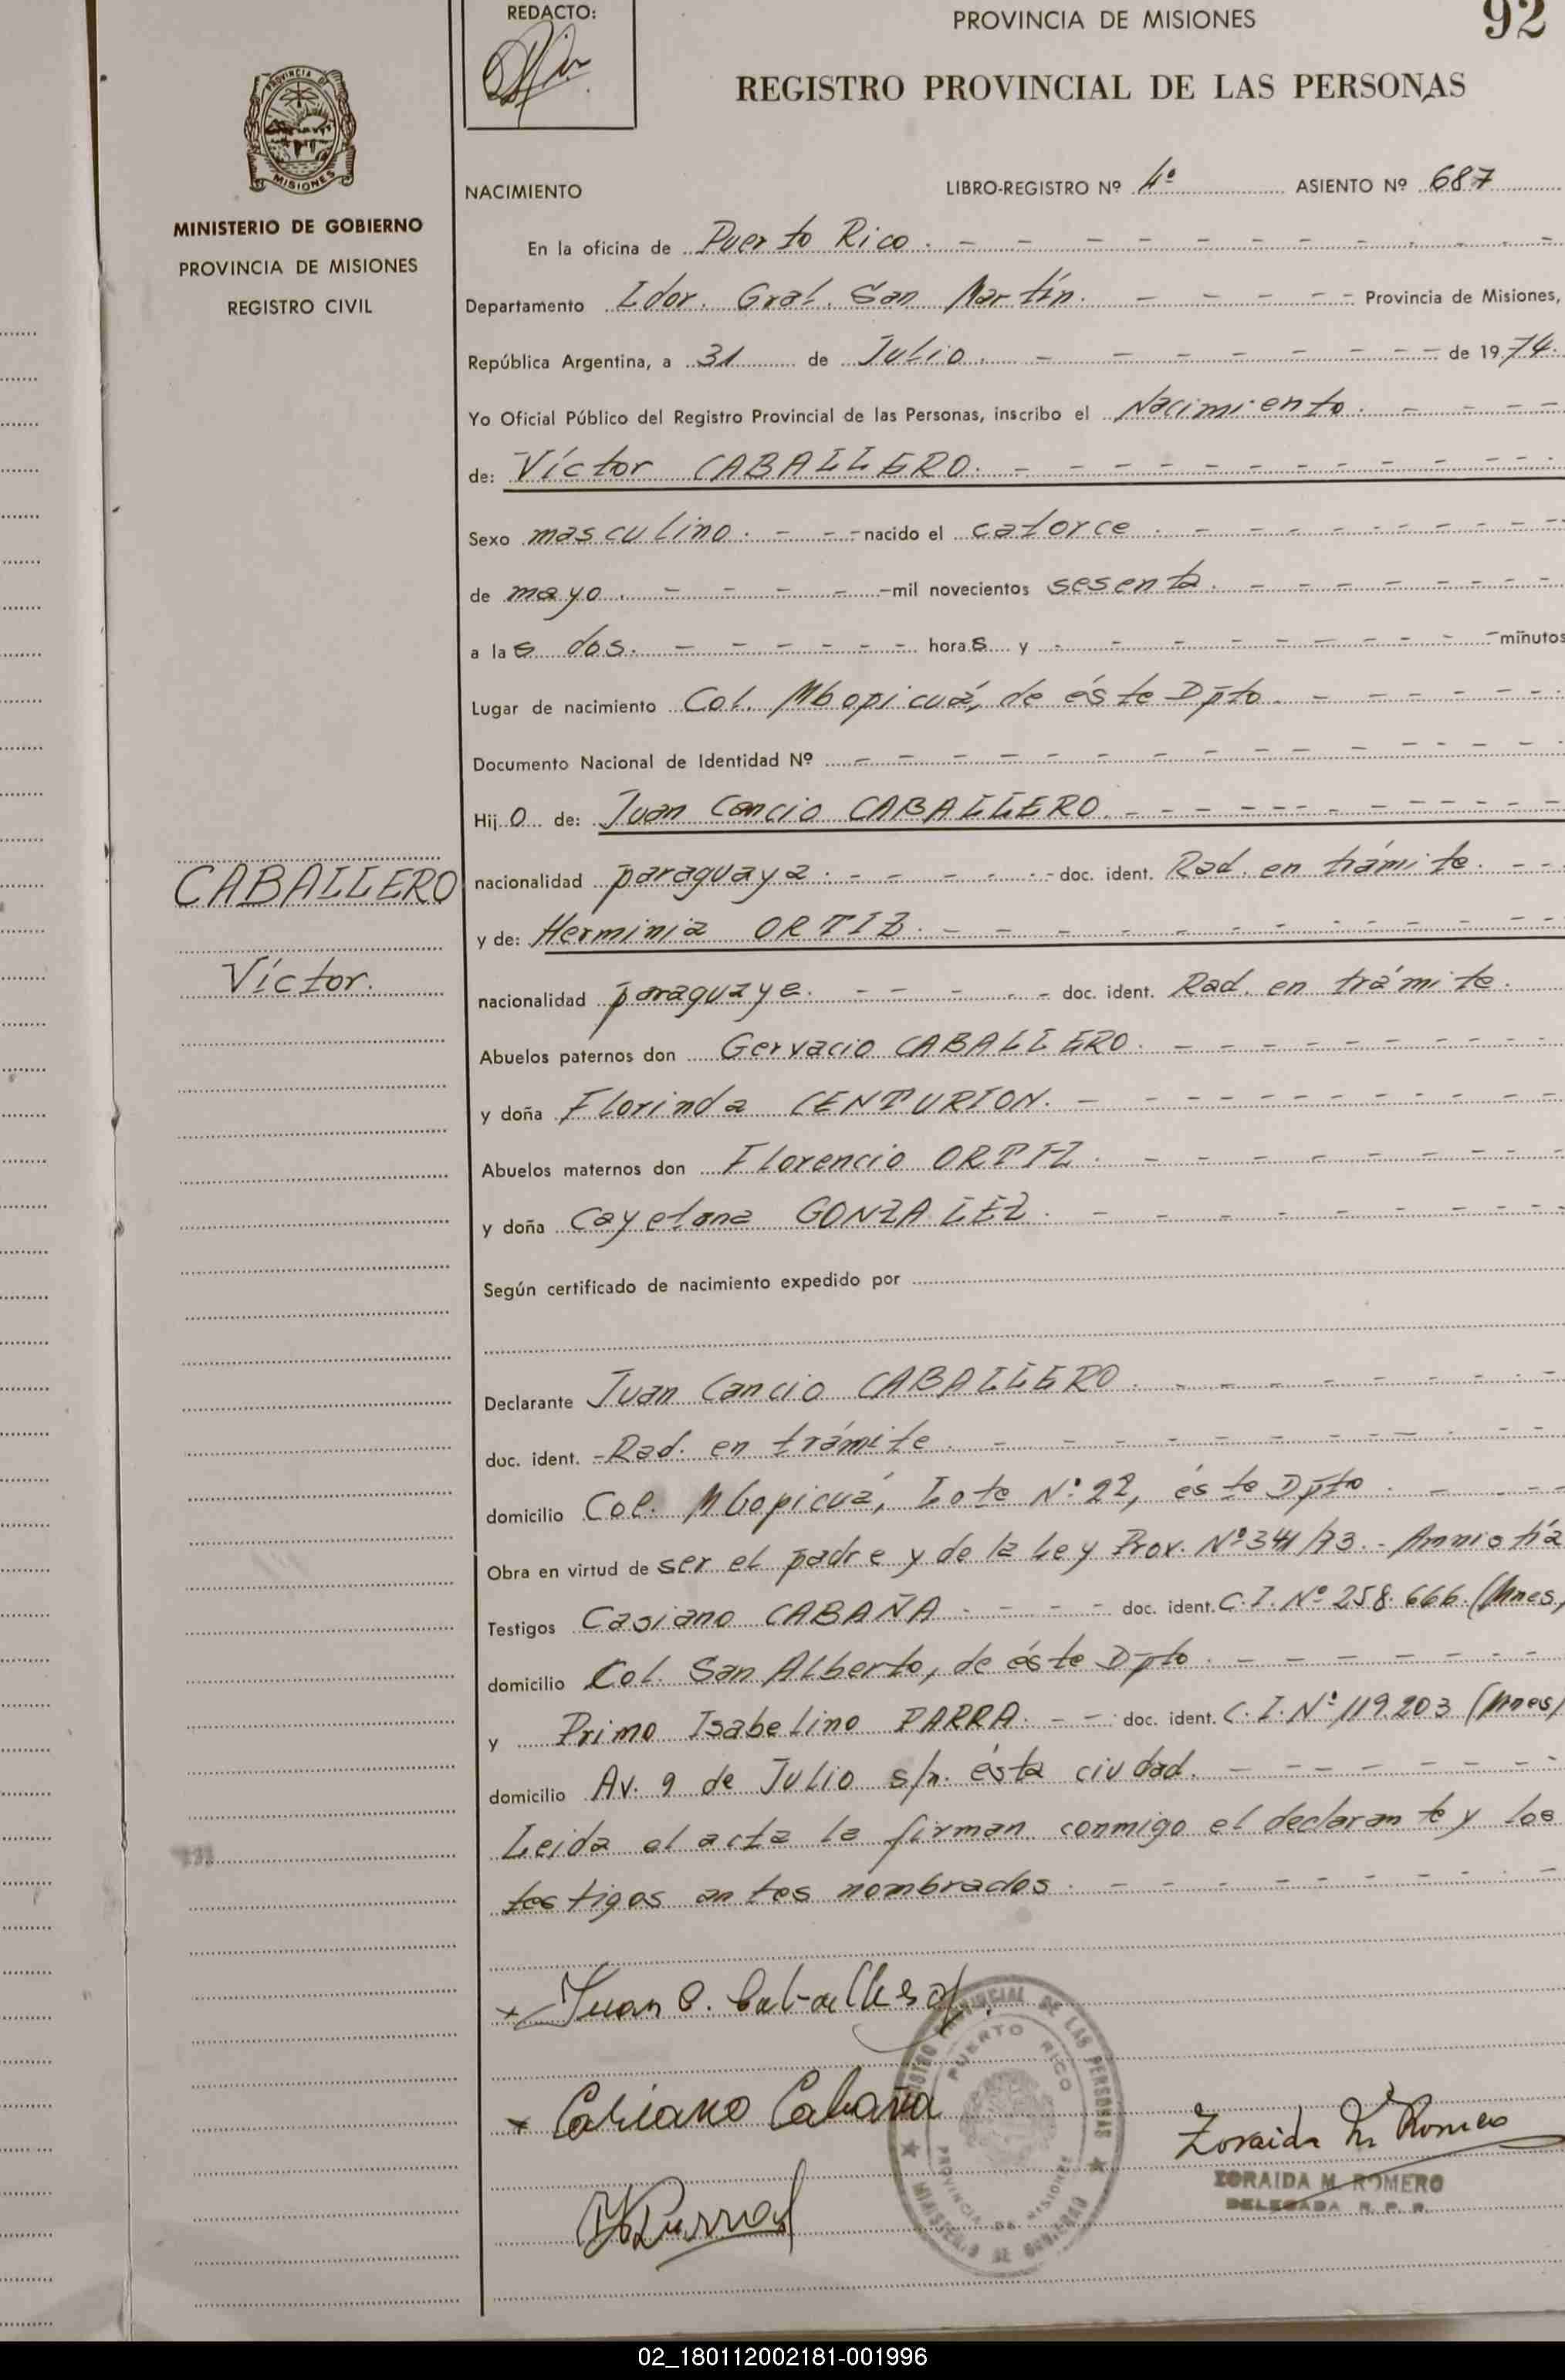 REDACTO:
PROVINCIA DE MISIONES
92
REGISTRO PROVINCIAL DE LAS PERSONAS
PROVINCIA DE
MISIONES
MINISTERIO DE GOBIERNO
PROVINCIA DE MISIONES
REGISTRO CIVIL
NACIMIENTO LIBRO-REGISTRO Nº 4º ASIENTO Nº 687
En la oficina de Puerto Rico. - - - - - - - - - -
Departamento Ldor. Gral. San Martín. - - - - - Provincia de Misiones,
República Argentina, a 31 de Julio. - - - - - - - de 1974.
Yo Oficial Público del Registro Provincial de las Personas, inscribo el Nacimiento. - - - -
de: Víctor CABALLERO. - - - - - - - - - -
Sexo masculino. - - - nacido el catorce. - - - - - - - -
de mayo. - - - - - mil novecientos sesenta. - - - - - - -
a las dos. - - - - - - horas y - - - - - - - - minutos
Lugar de nacimiento Col. Mbopicuá, de éste Dpto. - - - - -
Documento Nacional de Identidad Nº - - - - - - - - - -
Hijo de: Juan Cancio CABALLERO. - - - - - - - - -
CABALLERO
nacionalidad paraguaya. - - - - - doc. ident. Rad. en trámite. - -
y de: Herminia ORTIZ. - - - - - - - - - -
Víctor.
nacionalidad paraguaya. - - - - - doc. ident. Rad. en trámite.
Abuelos paternos don Gervacio CABALLERO. - - - - - - - -
y doña Florinda CENTURION. - - - - - - - - -
Abuelos maternos don Florencio ORTIZ. - - - - - - - -
y doña Cayetana GONZALEZ. - - - - - - - -
Según certificado de nacimiento expedido por
Declarante Juan Cancio CABALLERO. - - - - - - - -
doc. ident. - Rad. en trámite. - - - - - - - - -
domicilio Col. Mbopicuá, Lote Nº 22, éste Dpto. - - - -
Obra en virtud de ser el padre y de la Ley Prov. Nº 341/73. - Amnistía
Testigos Casiano CABAÑA. - - - - doc. ident. C.I. Nº 258.666. (Mnes,
domicilio Col. San Alberto, de éste Dpto. - - - - - - -
y Primo Isabelino PARRA. - - doc. ident. C.I. Nº 119.203 (Mnes)
domicilio Av. 9 de Julio s/n. ésta ciudad. - - - - - - -
Leida el acta la firman conmigo el declarante y los
testigos antes nombrados. - - - - - - - -
x Juan C. Caballero
REGISTRO PROVINCIAL DE LAS PERSONAS
PUERTO RICO
PROVINCIA DE MISIONES
★ MINISTERIO DE GOBIERNO ★
x Casiano Cabaña
Zoraida M. Romero
ZORAIDA M. ROMERO
DELEGADA R. P. P.
02_180112002181-001996